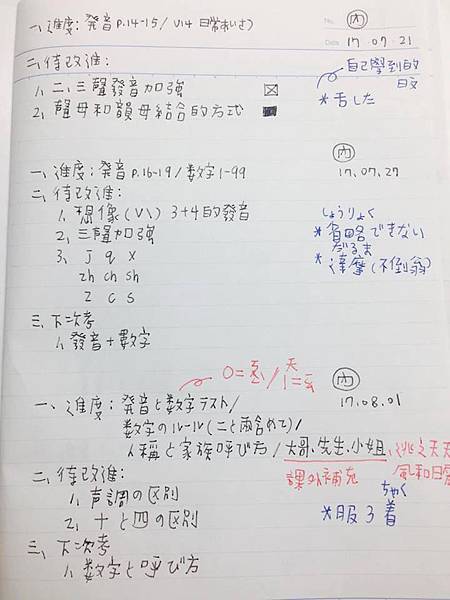 一、進度：発音 P.14-15 / V14 日常あいさつ
No.
内
Date 17.07.21
二、待改進：
1、二、三聲發音加強
2、聲母和韻母結合的方式
自己學到的
日文
*舌した
内
一、進度：発音 P.16-19 / 数字 1-99
17.07.27
二、待改進：
1、想像(V\) 3+4的發音
2、三聲加強
3、j q x
zh ch sh
z c s
しょうりょく
*省略できない
だるま
*達摩(不倒翁)
三、下次考
1、發音+數字
内
一、進度：発音と数字テスト/
17.08.01
数字のルール(二と兩含めて)/
人稱と家族呼び方/大哥、先生、小姐、
課外補充
二、待改進：
1、声調の区別
2、十と四の区別
ちゃく
*服3着
三、下次考
1、数字と呼び方